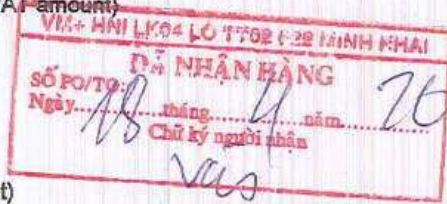 AT amount)
VM+ HNI LK04 LÔ TT02 622 MINH KHAI
ĐÃ NHẬN HÀNG
SỐ PO/TO:
Ngày 18 tháng 4 năm 26
Chữ ký người nhận
t)